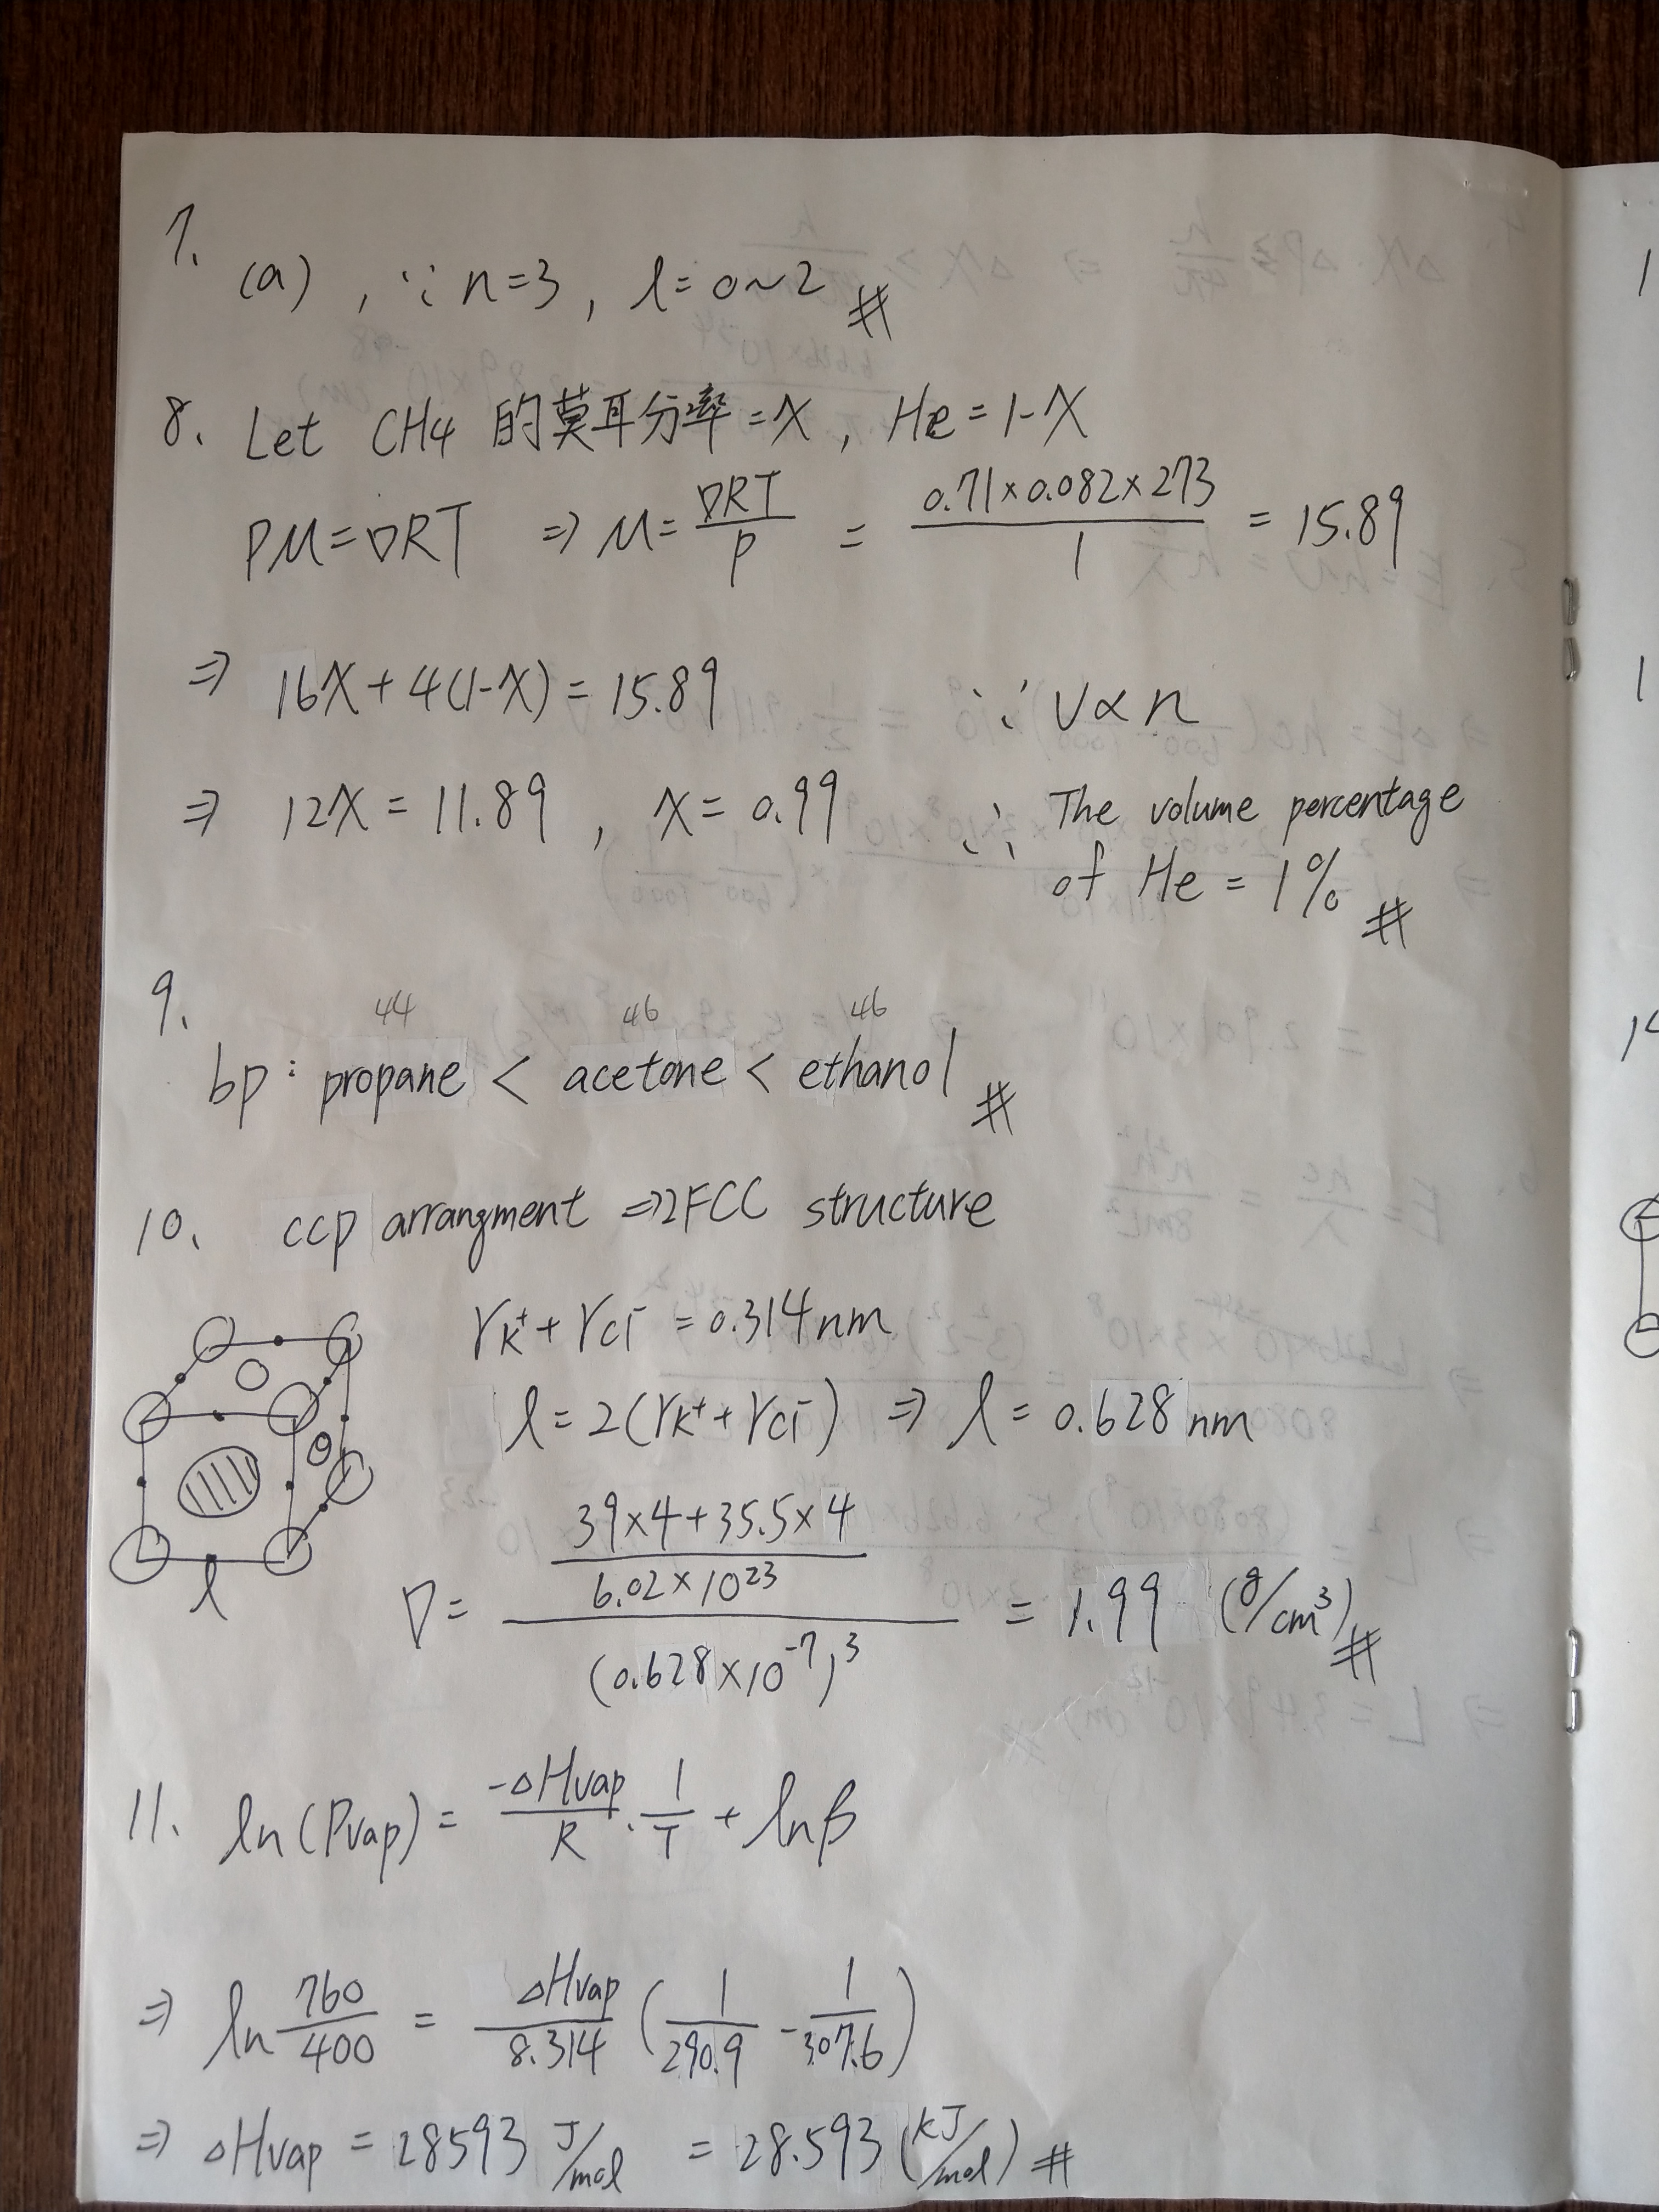 7. (a) , ∵ n=3 , l=0~2 #
8. Let CH4 的莫耳分率=X , He=1-X
PM=DRT ⇒ M= DRT/P = 0.71×0.082×273/1 = 15.89
⇒ 16X+4(1-X)=15.89 ∵ V∝n
⇒ 12X=11.89 , X=0.99 ∴ The volume percentage
of He = 1% #
9.
44 46 46
bp: propane < acetone < ethanol #
10. ccp arrangment ⇒ FCC structure
rK⁺+rCl⁻ =0.314nm
l=2(rK⁺+rCl⁻) ⇒ l=0.628nm
l
D= (39×4+35.5×4 / 6.02×10²³) / (0.628×10⁻⁷)³ = 1.99 (g/cm³) #
11. ln(Pvap)= -△Hvap/R · 1/T + lnβ
⇒ ln 760/400 = △Hvap/8.314 (1/290.9 - 1/307.6)
⇒ △Hvap = 28593 J/mol = 28.593 (kJ/mol) #